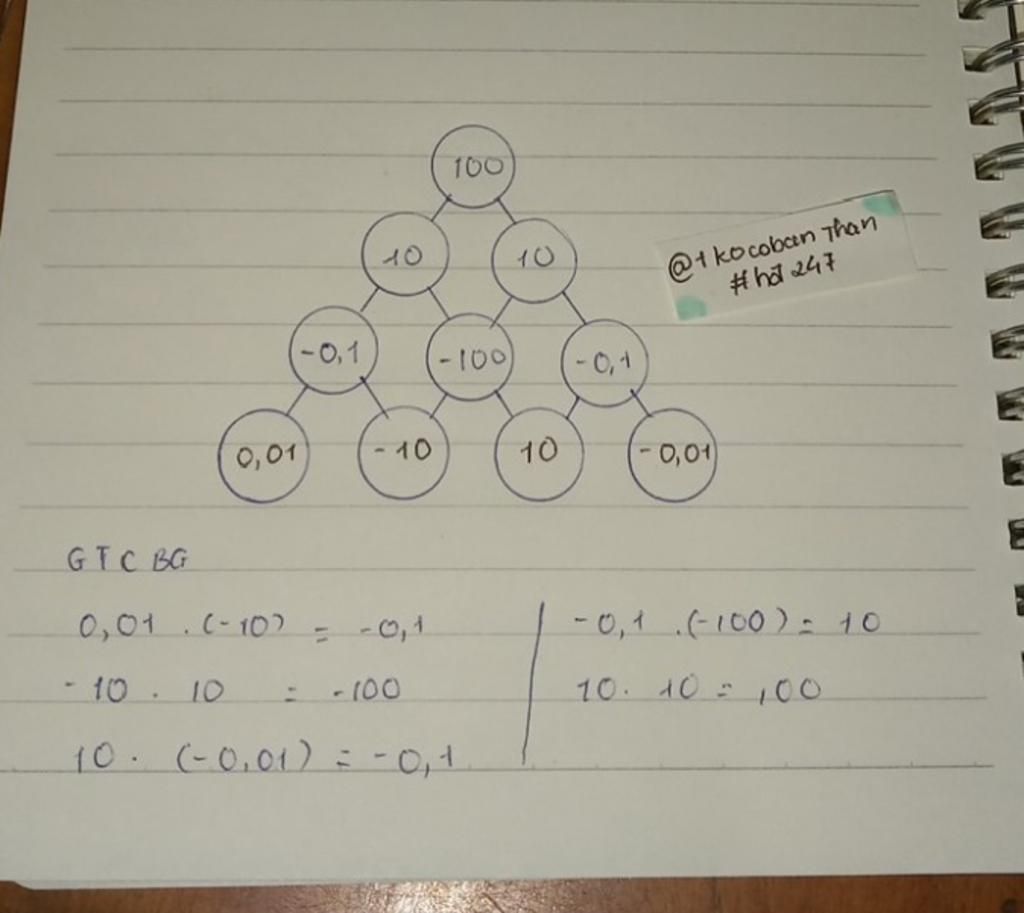 100
10 10
-0,1 -100 -0,1
0,01 -10 10 -0,01
@1 kocoban Than
#hd 247
GTCBG
0,01 . (-10) = -0,1
-10 . 10 = -100
10 . (-0,01) = -0,1
-0,1 .(-100) = 10
10. 10 = 100